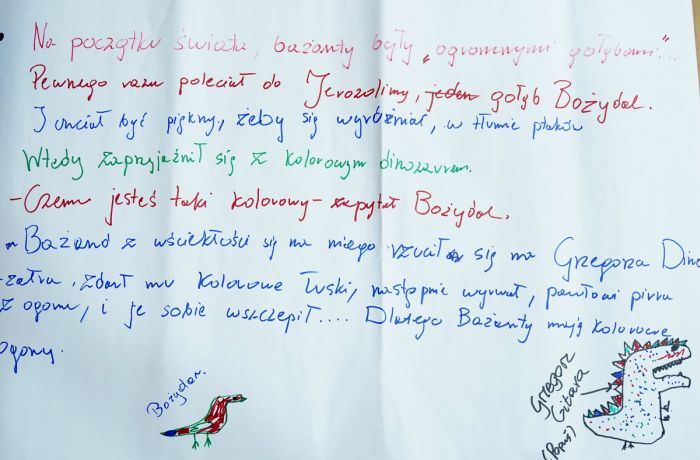 Na początku świata, bażanty były „ogromnymi gołębiami"...
Pewnego razu poleciał do Jerozolimy, jeden gołąb Bożydar.
I chciał być piękny, żeby się wyróżniał, w tłumie ptaków
Wtedy zaprzyjaźnił się z kolorowym dinozaurem.
- Czemu jesteś taki kolorowy - zapytał Bożydar.
Bażand z wściekłości się na niego rzucił się na Grzegorza Dino
-zaura, zdarł mu kolorowe łuski, następnie wyrwał, pawiowi pióra
z ogona, i je sobie wszczepił.... Dlatego Bażanty mają kolorowe
ogony.
Bożydar.
Grzegorz
Gitara